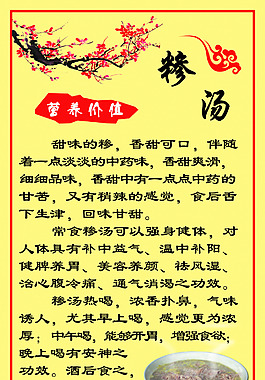 糁汤
营养价值
甜味的糁，香甜可口，伴随
着一点淡淡的中药味，香甜爽滑，
细细品味，香甜中有一点点中药的
甘苦，又有稍辣的感觉，食后舌
下生津，回味甘甜。
常食糁汤可以强身健体，对
人体具有补中益气、温中补阳、
健脾养胃、美容养颜、祛风湿、
治心腹冷痛、通气消渴之功效。
糁汤热喝，浓香扑鼻，气味
诱人，尤其早上喝，感觉更为浓
厚；中午喝，能够开胃，增强食欲；
晚上喝有安神之
功效。酒后食之，